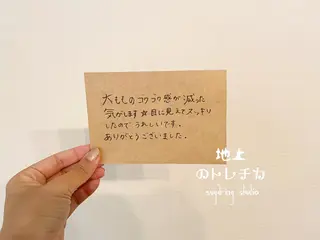 太ももの ゴワゴワ感が減った
気がします☆目に見えてスッキリ
したのでうれしいです。
ありがとうございました。
地上
のトレチカ